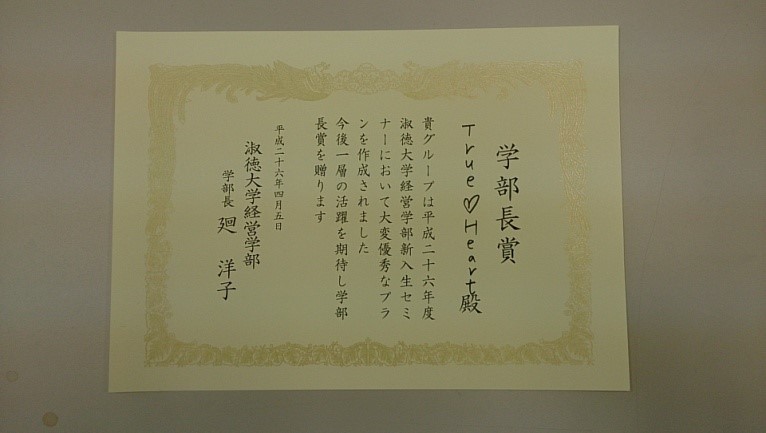 学部長賞
True♡Heart殿
貴グループは平成二十六年度
淑徳大学経営学部新入生セミ
ナーにおいて大変優秀なプラ
ンを作成されました
今後一層の活躍を期待し学部
長賞を贈ります
平成二十六年四月五日
淑徳大学経営学部
学部長 廻 洋子